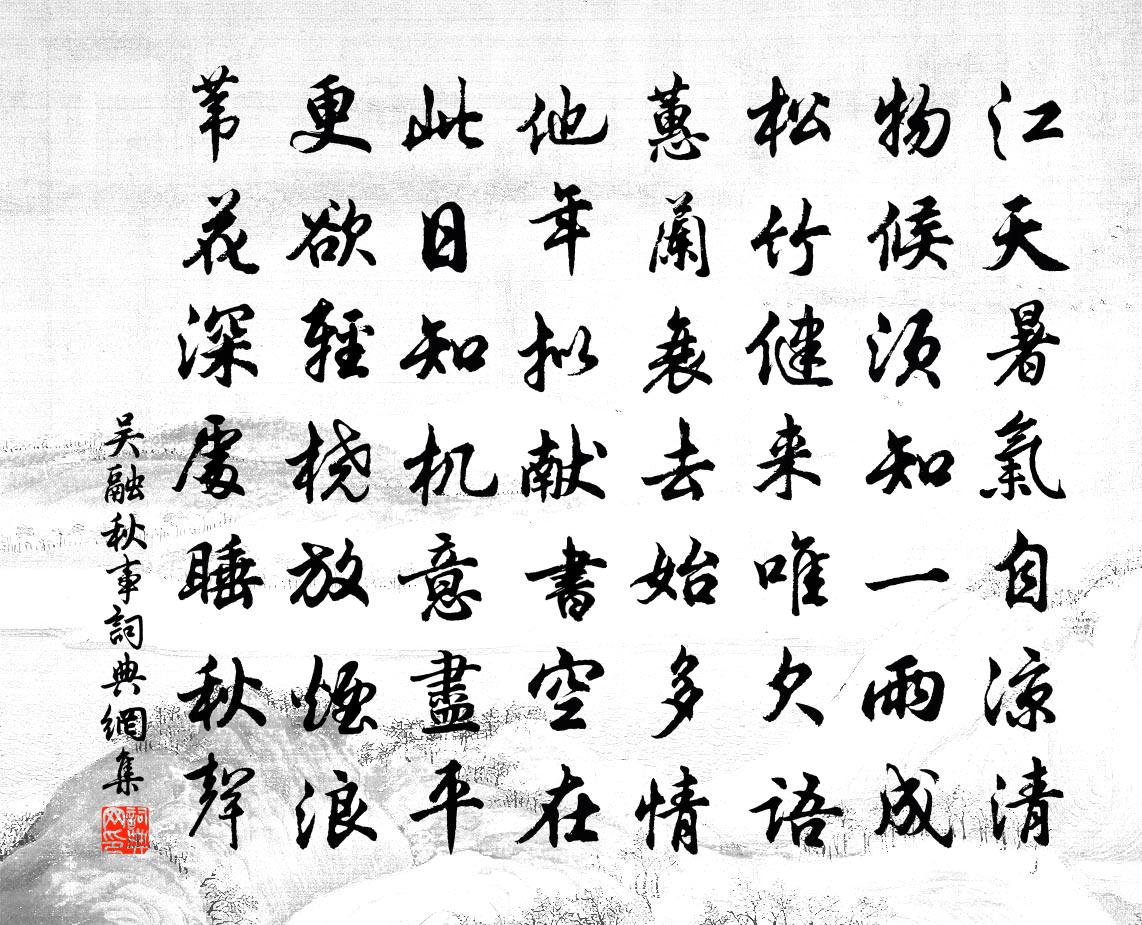 江天暑氣自凉清
物候須知一雨成
松竹健来唯欠語
蕙蘭衰去始多情
他年拟献書空在
此日知机意盡平
更欲輕桡放煙浪
苇花深處睡秋聲
吳融秋事詞典網集